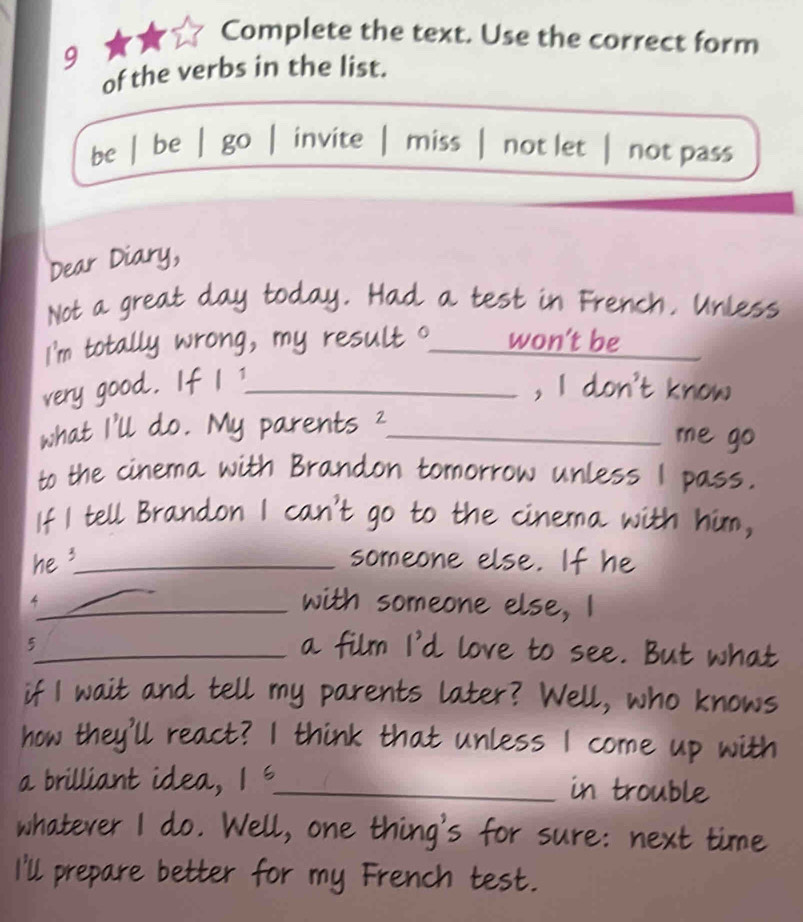 9 ★★☆ Complete the text. Use the correct form
of the verbs in the list.
be | be | go | invite | miss | not let | not pass
Dear Diary,
Not a great day today. Had a test in French. Unless
I'm totally wrong, my result ⁰ won't be
very good. If I ¹____________, I don't know
what I'll do. My parents ²____________ me go
to the cinema with Brandon tomorrow unless I pass.
If I tell Brandon I can't go to the cinema with him,
he ³____________ someone else. If he
⁴____________ with someone else, I
⁵____________ a film I'd love to see. But what
if I wait and tell my parents later? Well, who knows
how they'll react? I think that unless I come up with
a brilliant idea, I ⁶____________ in trouble
whatever I do. Well, one thing's for sure: next time
I'll prepare better for my French test.